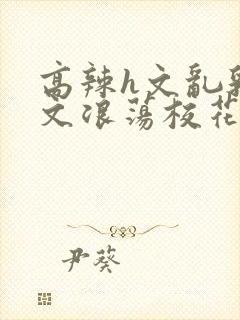 高辣h文乱乳
文浪荡校花
尹葵